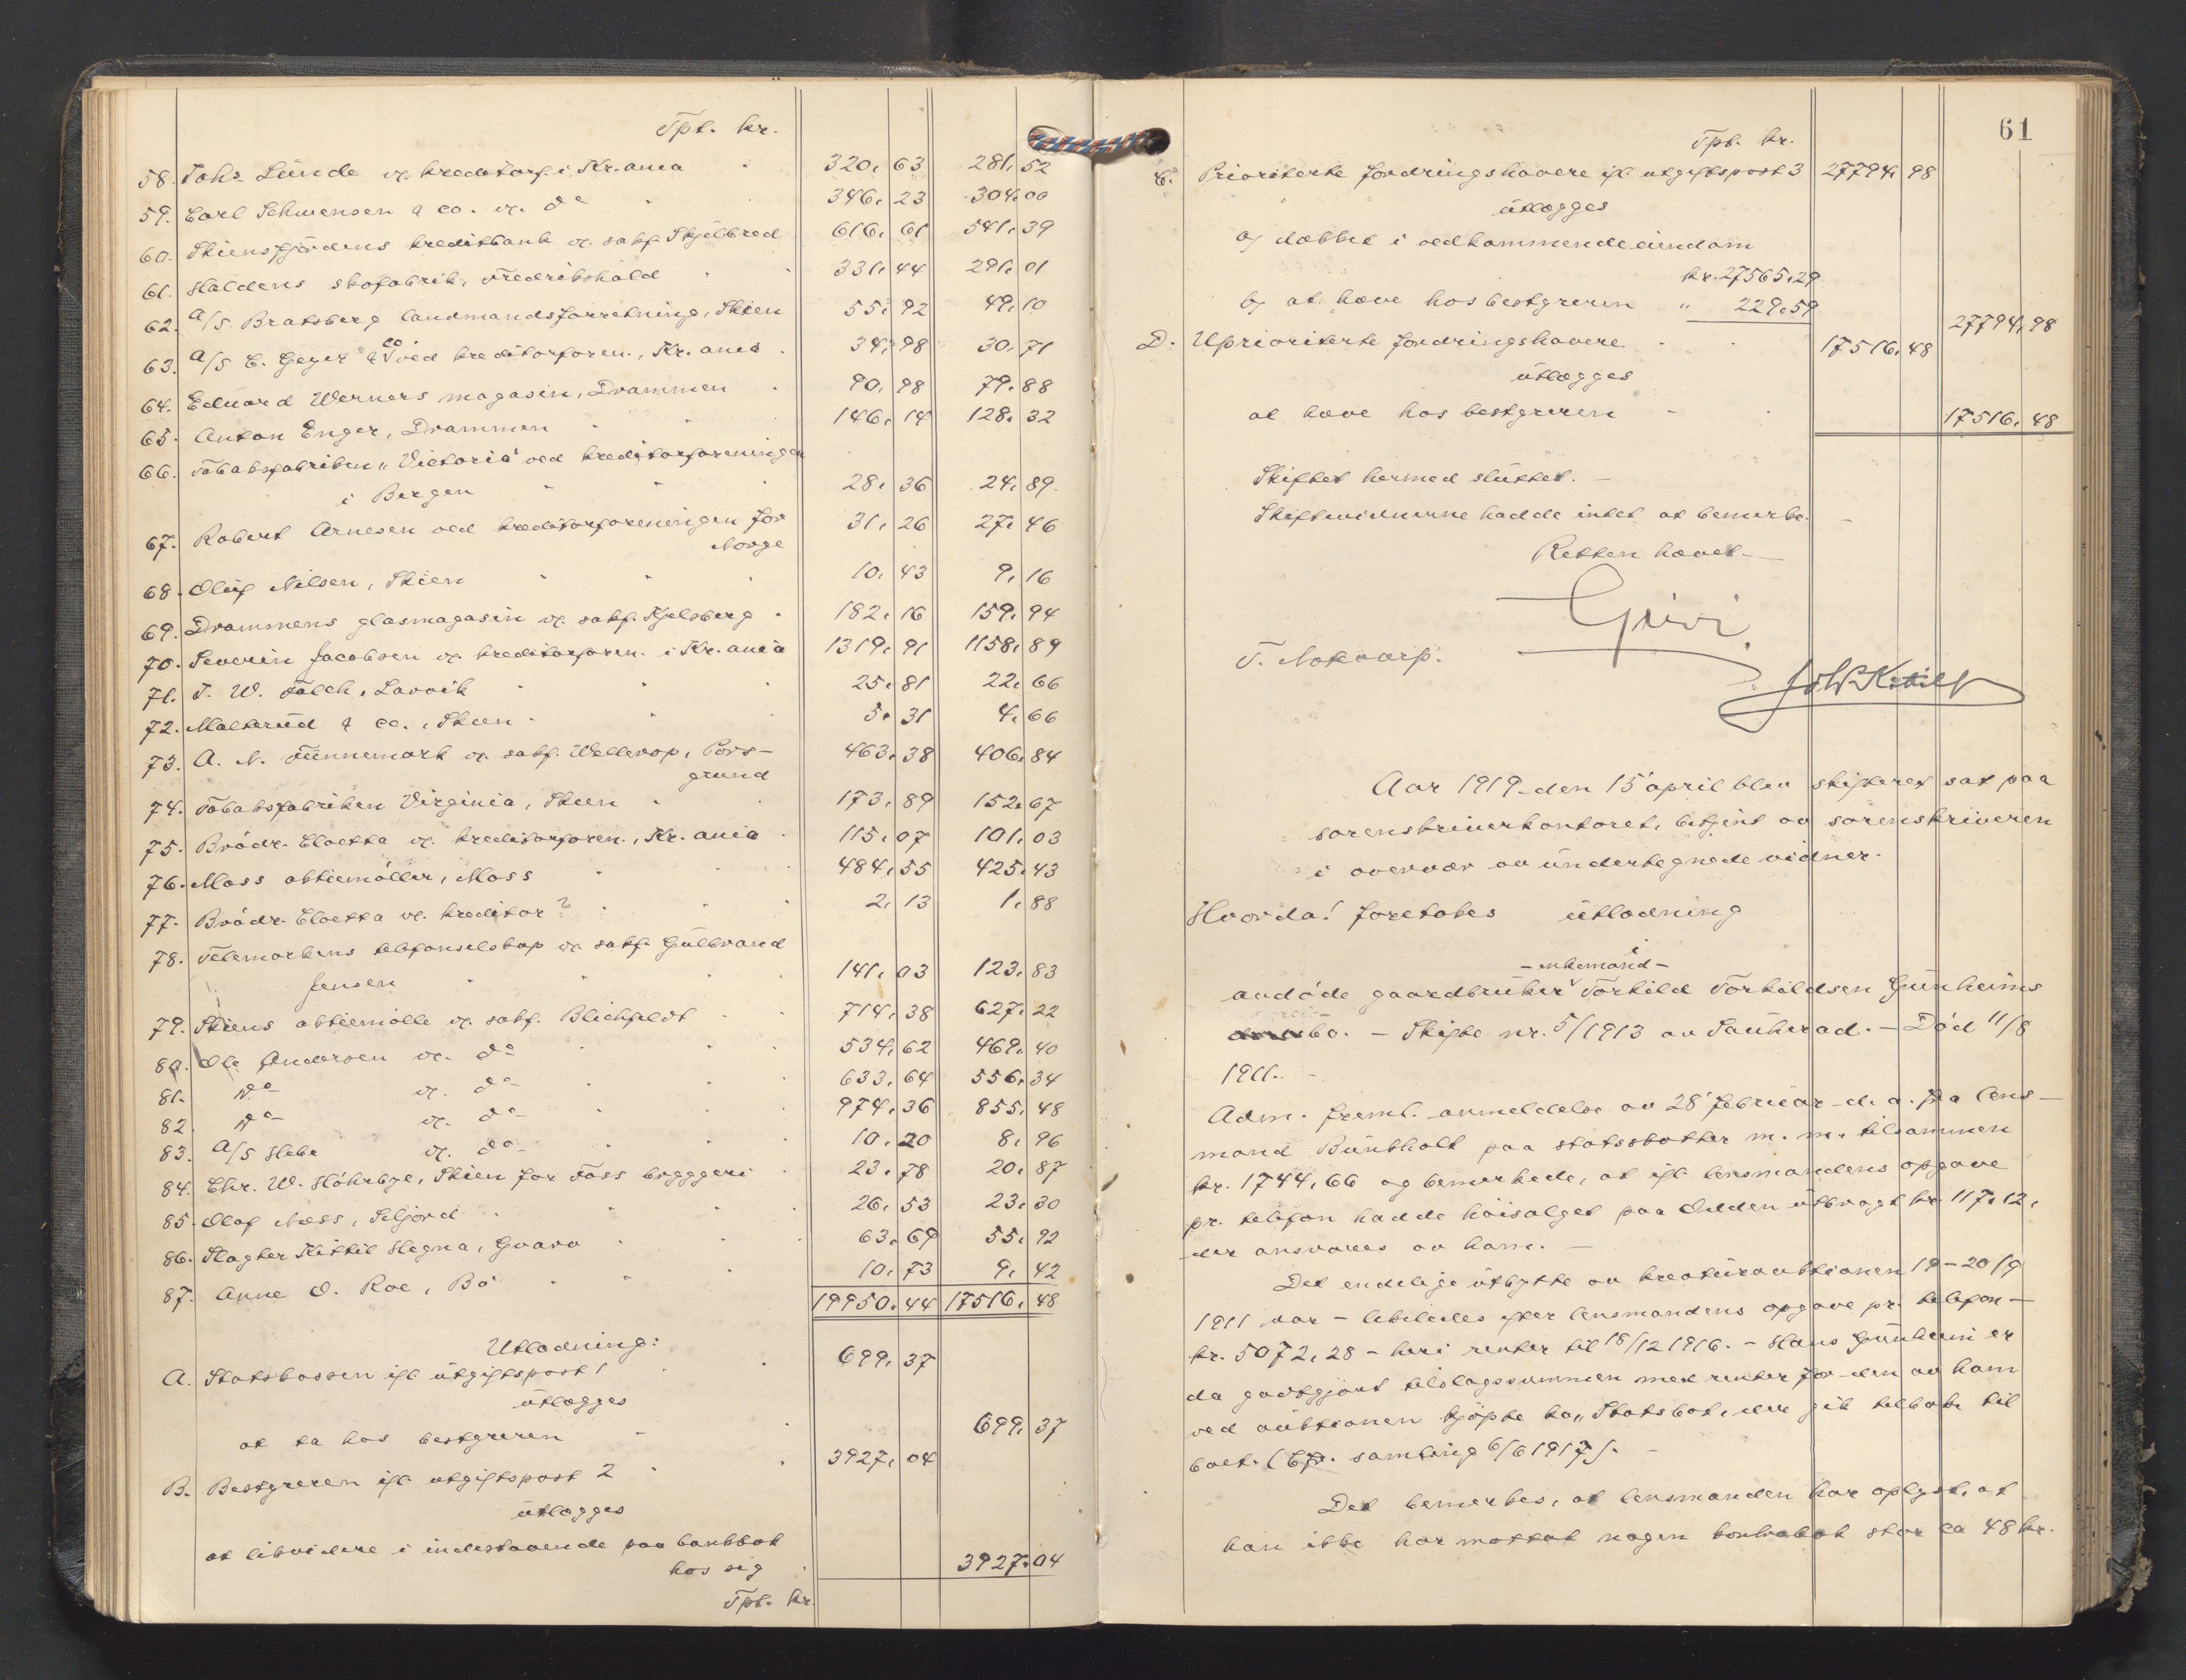 Tpt. kr.
58. Johs Lunde v. kreditorf. i Kr.ania 320, 63 281, 52
59. Carl Schwensen & co. v. do 346, 23 304, 00
60. Skiensfjordens kreditbank v. sakf. Skjelbred 616, 61 541, 39
61. Haldens skofabrik, Fredrikshald 331, 44 291, 01
62. A/S Bratsberg landmandsforretning, Skien 55, 92 49, 10
63. A/S E. Geyer & co ved kreditorforen., Kr.ania 34, 98 30, 71
64. Eduard Werners magasin, Drammen 90, 98 79, 88
65. Anton Enger, Drammen 146, 14 128, 32
66. Tobaksfabriken "Victoria" ved kreditorforeningen
i Bergen 28, 36 24, 89
67. Robert Arnesen ved kreditorforeningen for 31, 26 27, 46
Norge
68. Oluf Nilsen, Skien 10, 43 9, 16
69. Drammens glasmagasin v. sakf. Kjelsberg 182, 16 159, 94
70. Severin Jacobsen v. kreditorforen. i Kr.ania 1319, 91 1158, 89
71. T. W. Falck, Larvik 25, 81 22, 66
72. Malterud & co., Skien 5, 31 4, 66
73. A. N. Funnemark v. sakf. Wellerop, Pors- 463, 38 406, 84
grund
74. Tobaksfabriken Virginia, Skien 173, 89 152, 67
75. Brødr. Cloetta v. kreditorforen., Kr.ania 115, 07 101, 03
76. Moss aktiemøller, Moss 484, 55 425, 43
77. Brødr. Cloetta v. kreditor? 2, 13 1, 88
78. Telemarkens telefonselskap v. sakf. Gulbrand
Jensen 141, 03 123, 83
79. Skiens aktiemølle v. sakf. Blichfeldt 714, 38 627, 22
80. Ole Andersen v. do 534, 62 469, 40
81. Do v. do 633, 64 556, 34
82. Do v. do 974, 36 855, 48
83. A/S Hebe v. do 10, 20 8, 96
84. Chr. W. Høhrbye, Skien for Foss bryggeri 23, 78 20, 87
85. Olaf Næss, Seljord 26, 53 23, 30
86. Slagter Kittil Hegna, Gvarv 63, 69 55, 92
87. Anne O. Roe, Bø 10, 73 9, 42
19950, 44 17516, 48
Utlodning:
A. Statskassen ifl. utgiftspost 1 699, 37
utlægges
at ta hos bestyreren 699, 37
B. Bestyreren ifl. utgiftspost 2 3927, 04
utlægges
at likvidere i indestaaende paa bankbok
hos sig 3927, 04
Tpt. kr.
61
Tpt. kr.
C. Prioriterte fordringshavere ifl. utgiftspost 3 27794, 98
utlægges
a) dækket i vedkommende eiendom
kr. 27565,29
b) at hæve hos bestyreren " 229,59
27794, 98
D. Uprioriterte fordringshavere 17516, 48
utlægges
at hæve hos bestyreren 17516, 48
Skiftet hermed sluttet. -
Skiftevidnerne hadde intet at bemerke. -
Retten hævet. -
T. Notvarp.
Aar 1919 den 15' april blev skifteret sat paa
sorenskriverkontoret, betjent av sorenskriveren
i overvær av undertegnede vidner.
Hvorda! foretokes utlodning
i
- enkemand -
avdøde gaardbruker Torkild Torkildsen Gunheims
bo. - Skifte nr. 5/1913 av Sauherad. - Død 11/8
1911. -
Adm. freml. anmeldelse av 28' februar d. a. fra lens-
mand Bunkholt paa statsskatter m. m. tilsammen
kr. 1744,66 og bemerkede, at ifl. lensmandens opgave
pr. telefon hadde høisalget paa Odden utbragt kr. 117,12,
der ansvares av ham. -
Det endelige utbytte av kreaturauktionen 19-20/9
1911 var - likeledes efter lensmandens opgave pr. telefon -
kr. 5072,28 - heri renter til 18/12 1916. - Hans Gunheim er
da godtgjort tilslagssummen med renter for den av ham
ved auktionen kjøpte ko "Statsbot", der gik tilbake til
boet. (Cfr. samling 6/6 1917). -
Det bemerkes, at lensmanden har oplyst, at
han ikke har mottat nogen bankbok stor ca 48 kr.